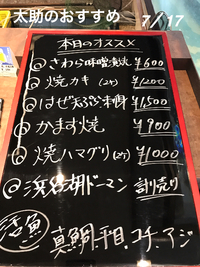 太助のおすすめ 7/17
本日のオススメ
◎さわら味噌漬焼 ¥600
◎焼カキ(2ケ) ¥1200
◎はぜ天ぷら本揚 ¥1500
◎かます焼 ¥900
◎焼ハマグリ(2ケ) ¥1000
◎浜名湖ドーマン 計り売り
活魚 真鯛、平目、コチ、アジ